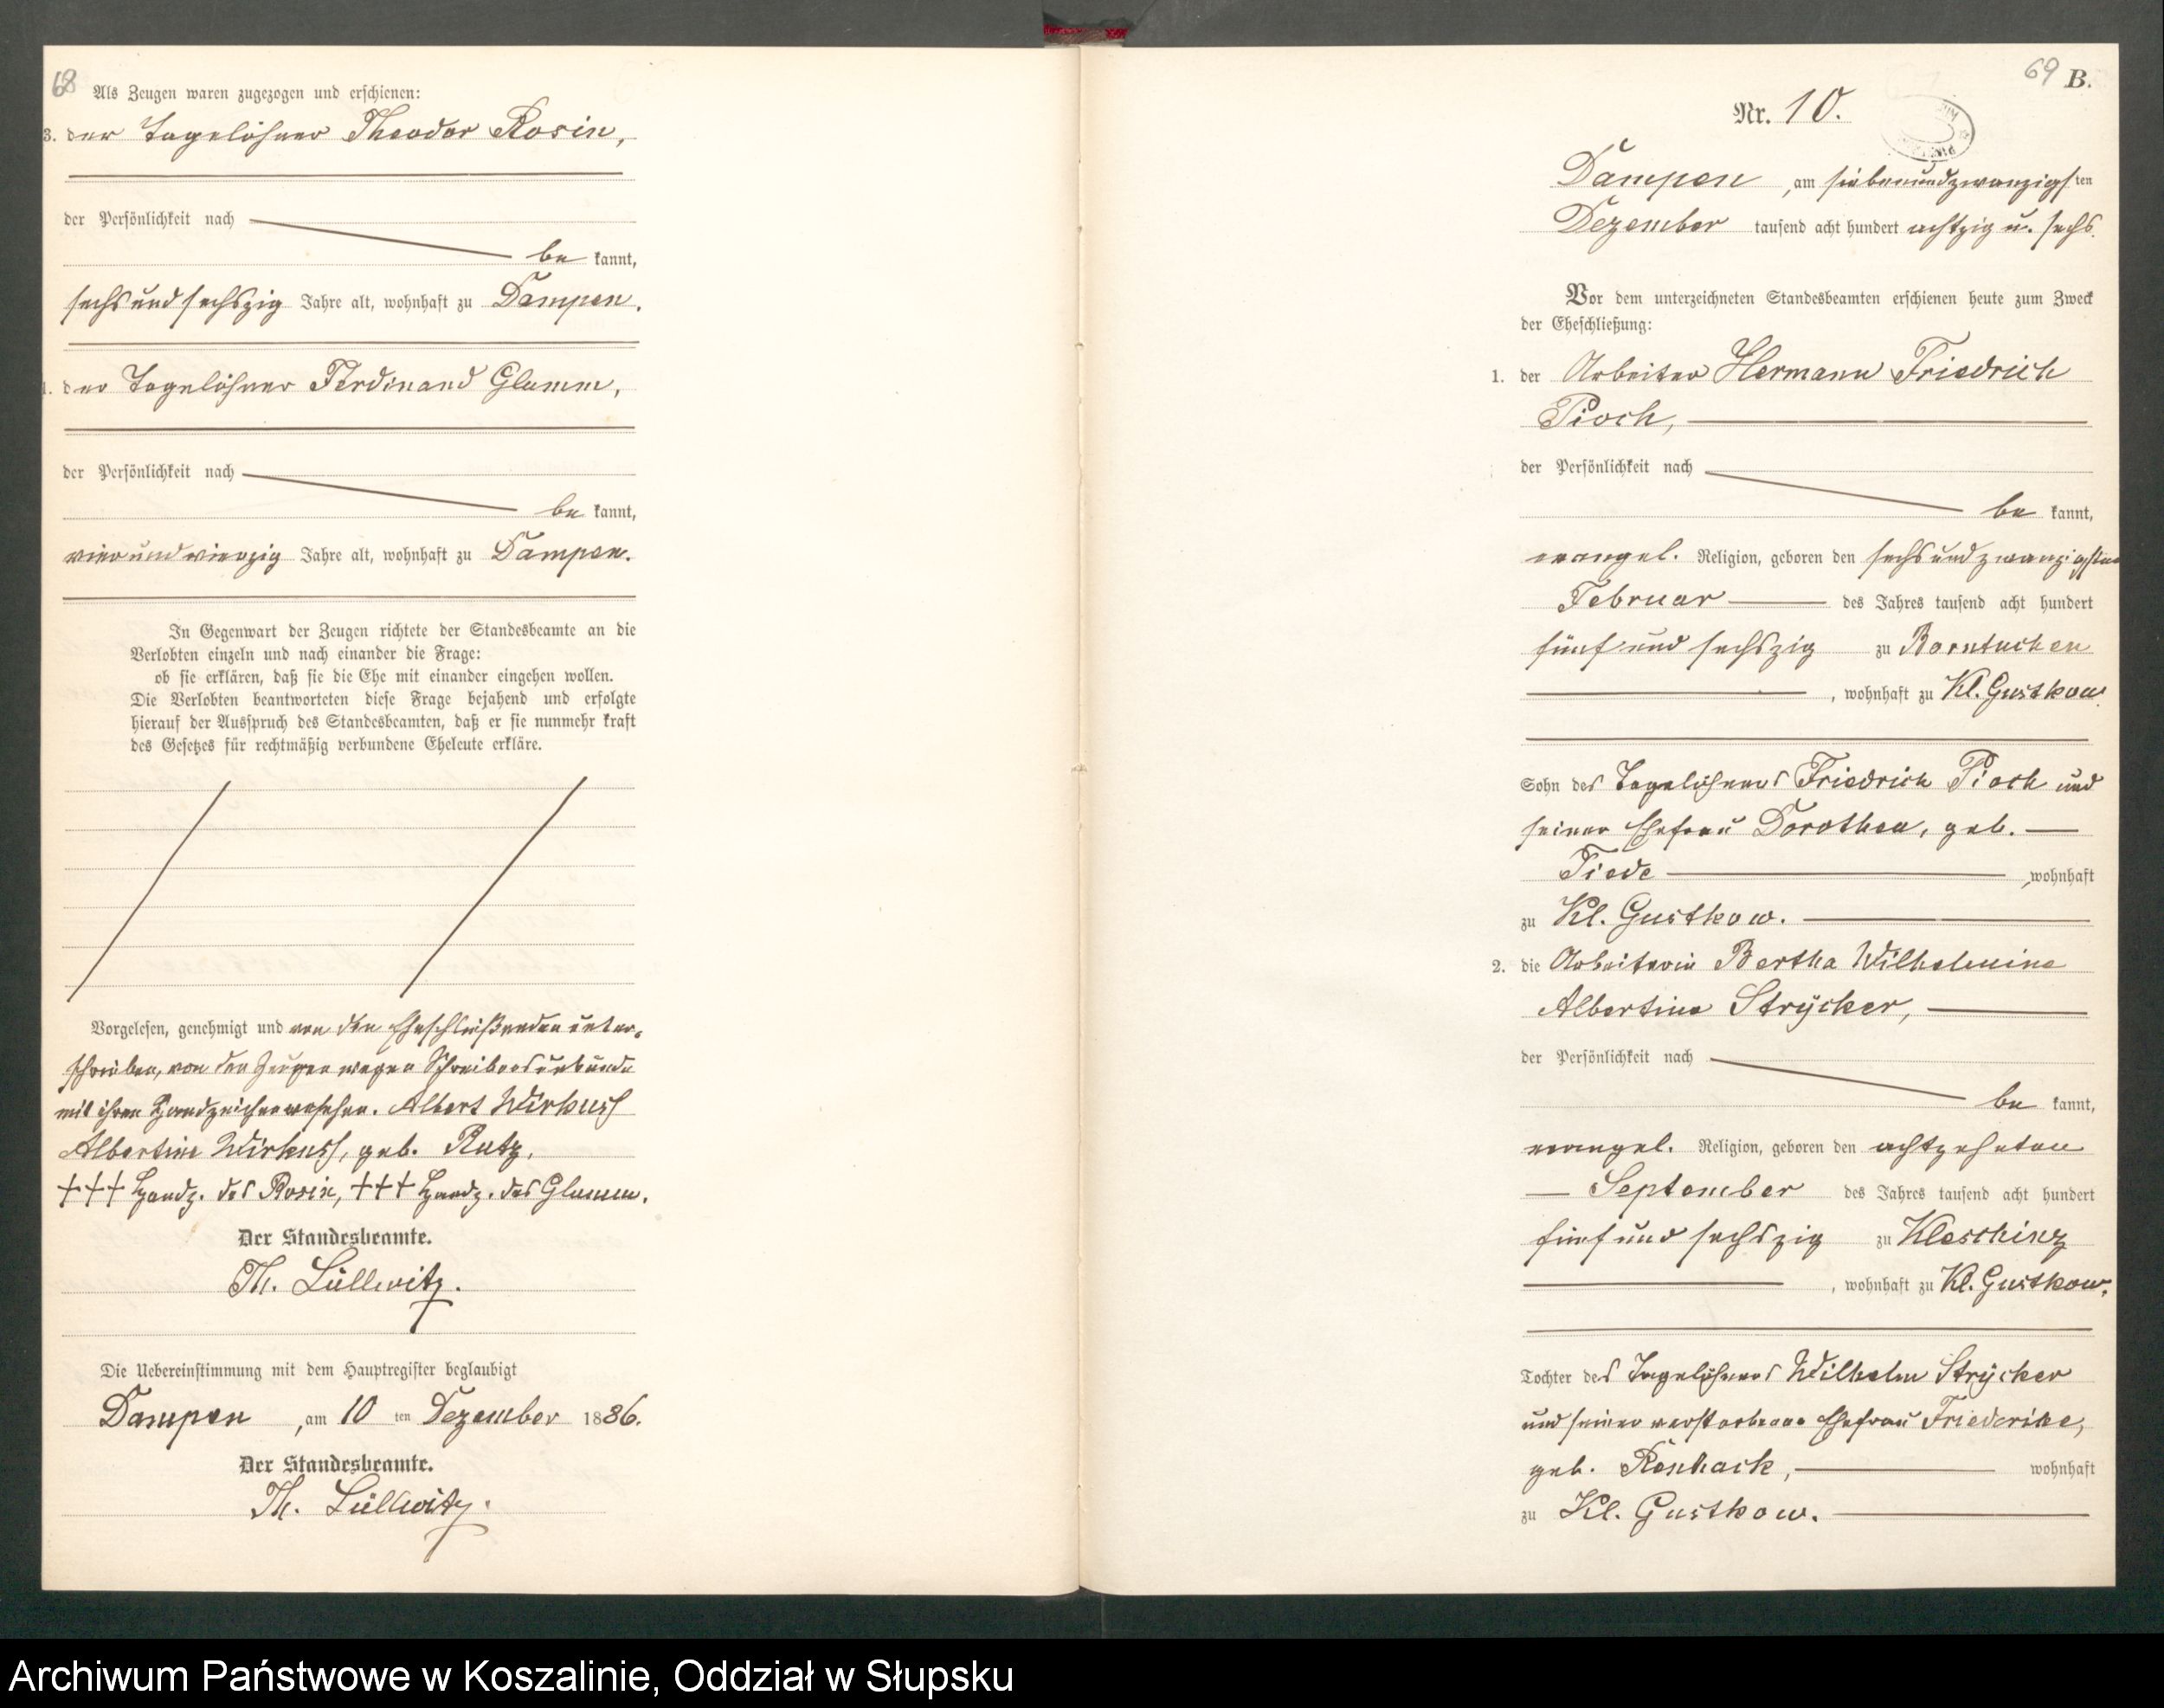 68
Als Zeugen waren zugezogen und erschienen:
3. der Tagelöhner Theodor Rosin,
der Persönlichkeit nach
be kannt,
sechs und sechszig Jahre alt, wohnhaft zu Dampen.
4. der Tagelöhner Ferdinand Glamm,
der Persönlichkeit nach
be kannt,
vier und vierzig Jahre alt, wohnhaft zu Dampen.
In Gegenwart der Zeugen richtete der Standesbeamte an die
Verlobten einzeln und nach einander die Frage:
ob sie erklären, daß sie die Ehe mit einander eingehen wollen.
Die Verlobten beantworteten diese Frage bejahend und erfolgte
hierauf der Ausspruch des Standesbeamten, daß er sie nunmehr kraft
des Gesetzes für rechtmäßig verbundene Eheleute erkläre.
Vorgelesen, genehmigt und von den Eheschließenden unter-
schrieben, von den Zeugen wegen Schreibensunkunde
mit ihren Handzeichen versehen. Albert Wirkuss
Albertine Wirkuss, geb. Rutz.
+++ Handz. des Rosin, +++ Handz. des Glamm.
Der Standesbeamte.
Th. Lüllwitz.
Die Uebereinstimmung mit dem Hauptregister beglaubigt
Dampen, am 10 ten Dezember 1886.
Der Standesbeamte.
Th. Lüllwitz.
69 B.
Nr. 10.
Dampen, am siebenundzwanzigsten
Dezember tausend acht hundert achtzig u. sechs.
Vor dem unterzeichneten Standesbeamten erschienen heute zum Zweck
der Eheschließung:
1. der Arbeiter Hermann Friedrich
Pioch,
der Persönlichkeit nach
be kannt,
evangel. Religion, geboren den sechs und zwanzigsten
Februar des Jahres tausend acht hundert
fünf und sechszig zu Borntuchen
, wohnhaft zu Kl. Gustkow.
Sohn des Tagelöhners Friedrich Pioch und
seiner Ehefrau Dorothea, geb.
Tiede, wohnhaft
zu Kl. Gustkow.
2. die Arbeiterin Bertha Wilhelmine
Albertine Strÿcker,
der Persönlichkeit nach
be kannt,
evangel. Religion, geboren den achtzehnten
September des Jahres tausend acht hundert
fünf und sechszig zu Kleschinz
, wohnhaft zu Kl. Gustkow.
Tochter des Tagelöhners Wilhelm Strÿcker
und seiner verstorbenen Ehefrau Friederike,
geb. wohnhaft
zu Kl. Gustkow.
Archiwum Państwowe w Koszalinie, Oddział w Słupsku